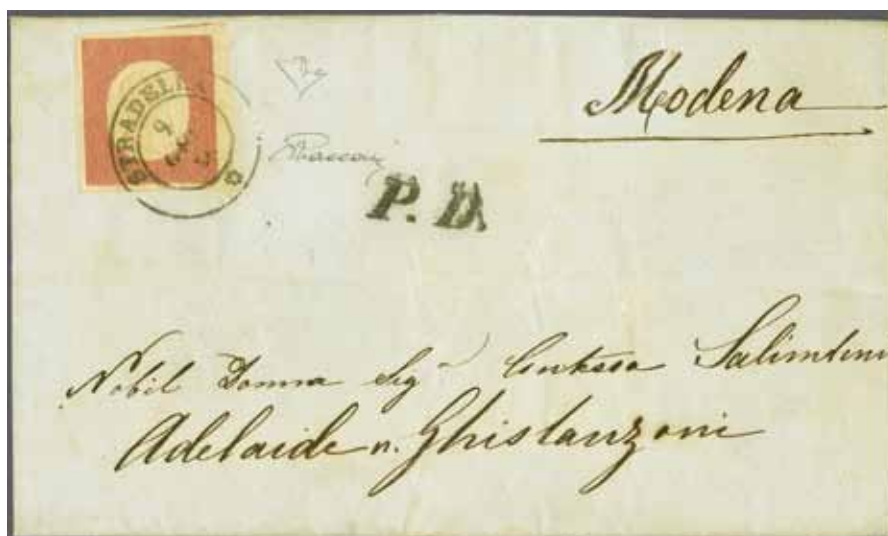 Modena
STRADELLA
9
P. D.
Nobil Donna Sig^a Contessa Salimbeni
Adelaide n. Ghislanzoni